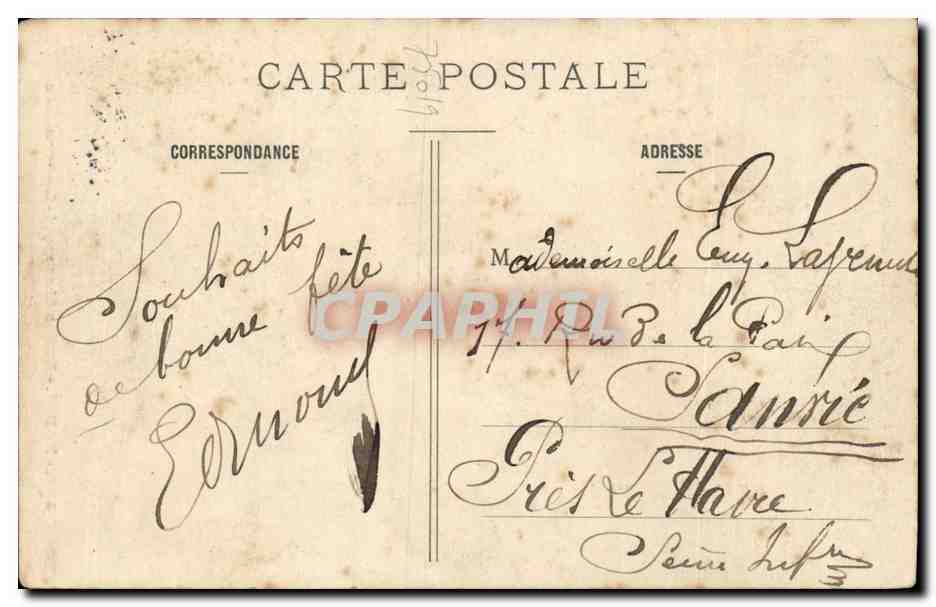 CARTE POSTALE
CORRESPONDANCE
ADRESSE
Souhaits
de bonne fête
Edmond
Mademoiselle Eug.
17. Rue de la Paix
Sanvic
Près Le Havre
Seine Infre
CPAPHIL